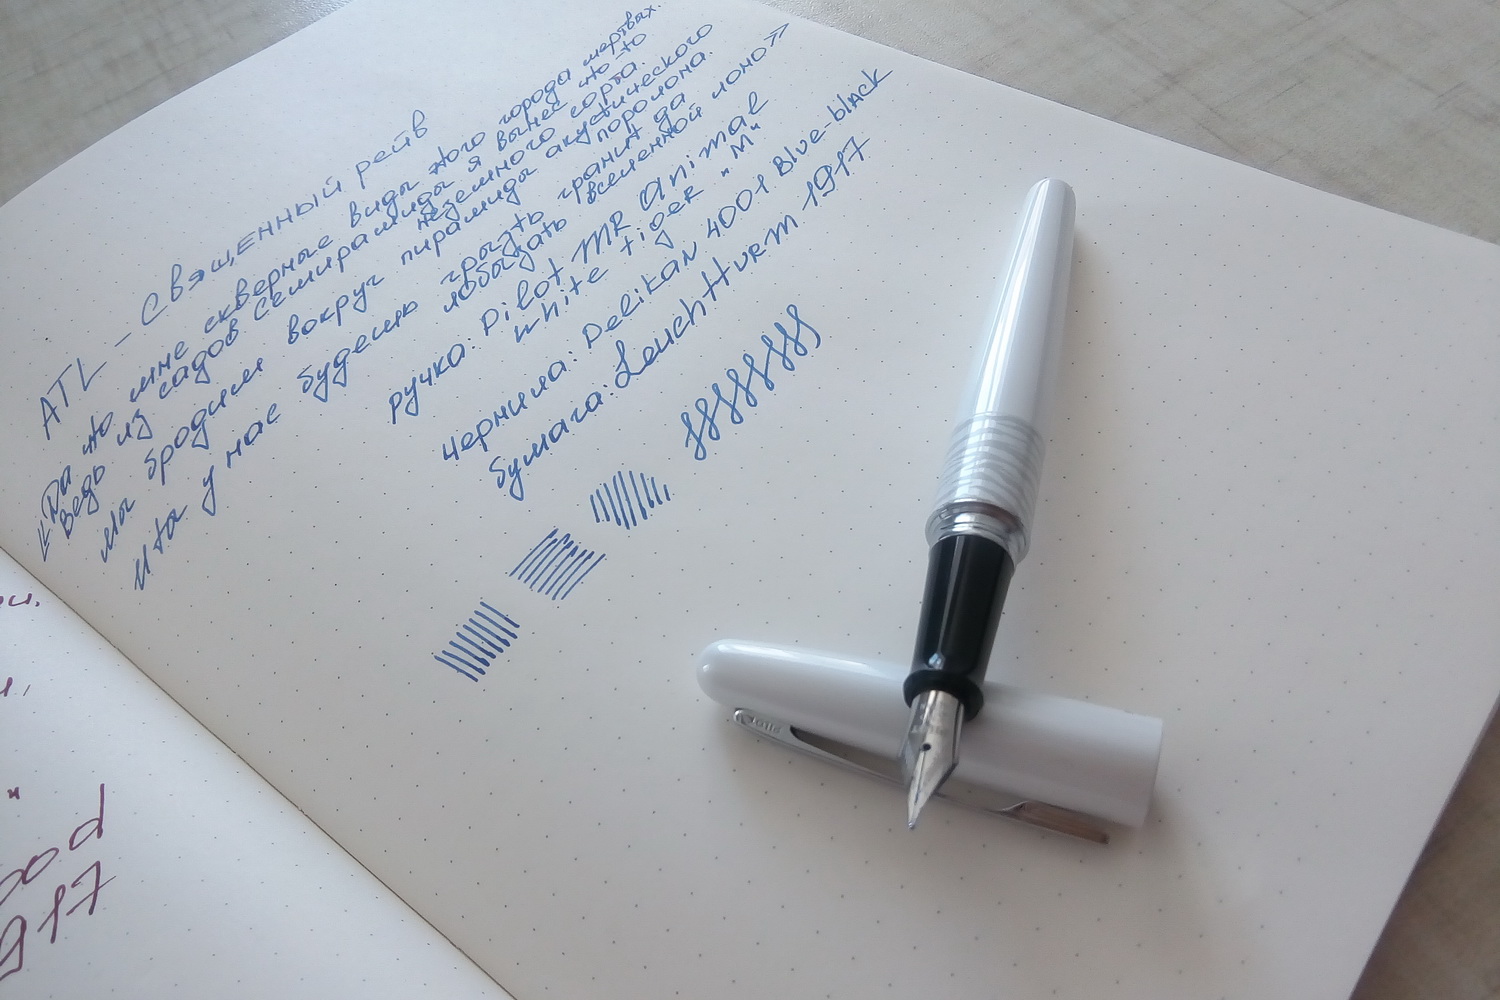 ATL – Священный рейв
«Да что мне скверные виды этого города мертвых.
Ведь из садов Семирамиды я вынес что-то
неземного сорта.
Мы бродим вокруг пирамиды акустического
поролона.
И ты у нас будешь грызть гранит да
лобызать вселенной лоно»
ручка: Pilot MR Animal
white tiger "M"
чернила: Pelikan 4001 Blue-black
бумага: Leuchtturm 1917
PILOT
917